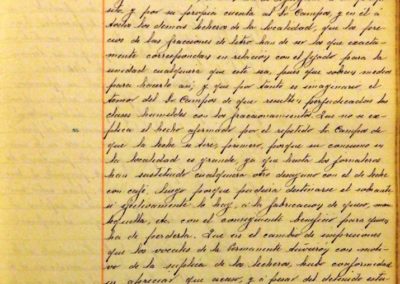 site y por su propia cuenta al Sr Campos, y en él á
todos los demas lecheros de la localidad, que los pre-
cios de las fracciones de litro han de ser los que exacta-
mente correspondan en relacion con el fijado para la
unidad cualquiera que este sea, pues que sobran medios
para hacerlo asi; y que por tanto es imaginario el
temor del Sr Campos de que resulten perjudicadas las
clases humildes con los fraccionamientos. Que no se ex-
plica el hecho afirmado por el repetido Sr Campos de
que la leche se tire, primero, porque su consumo en
la localidad es grande, ya que hasta los jornaleros
han sustituido cualquiera otro desayuno con el de leche
con café, luego porque pudiera destinarse el sobrante
si efectivamente lo hay, á la fabricacion de queso, man-
tequilla, etc. con el consiguiente beneficio para quien
ha de perderla. Que en el cambio de impresiones
que los vocales de la permanente tuvieron con moti-
vo de la suplica de los lecheros, hubo conformidad
en apreciar que
y á pesar del detenido estu-